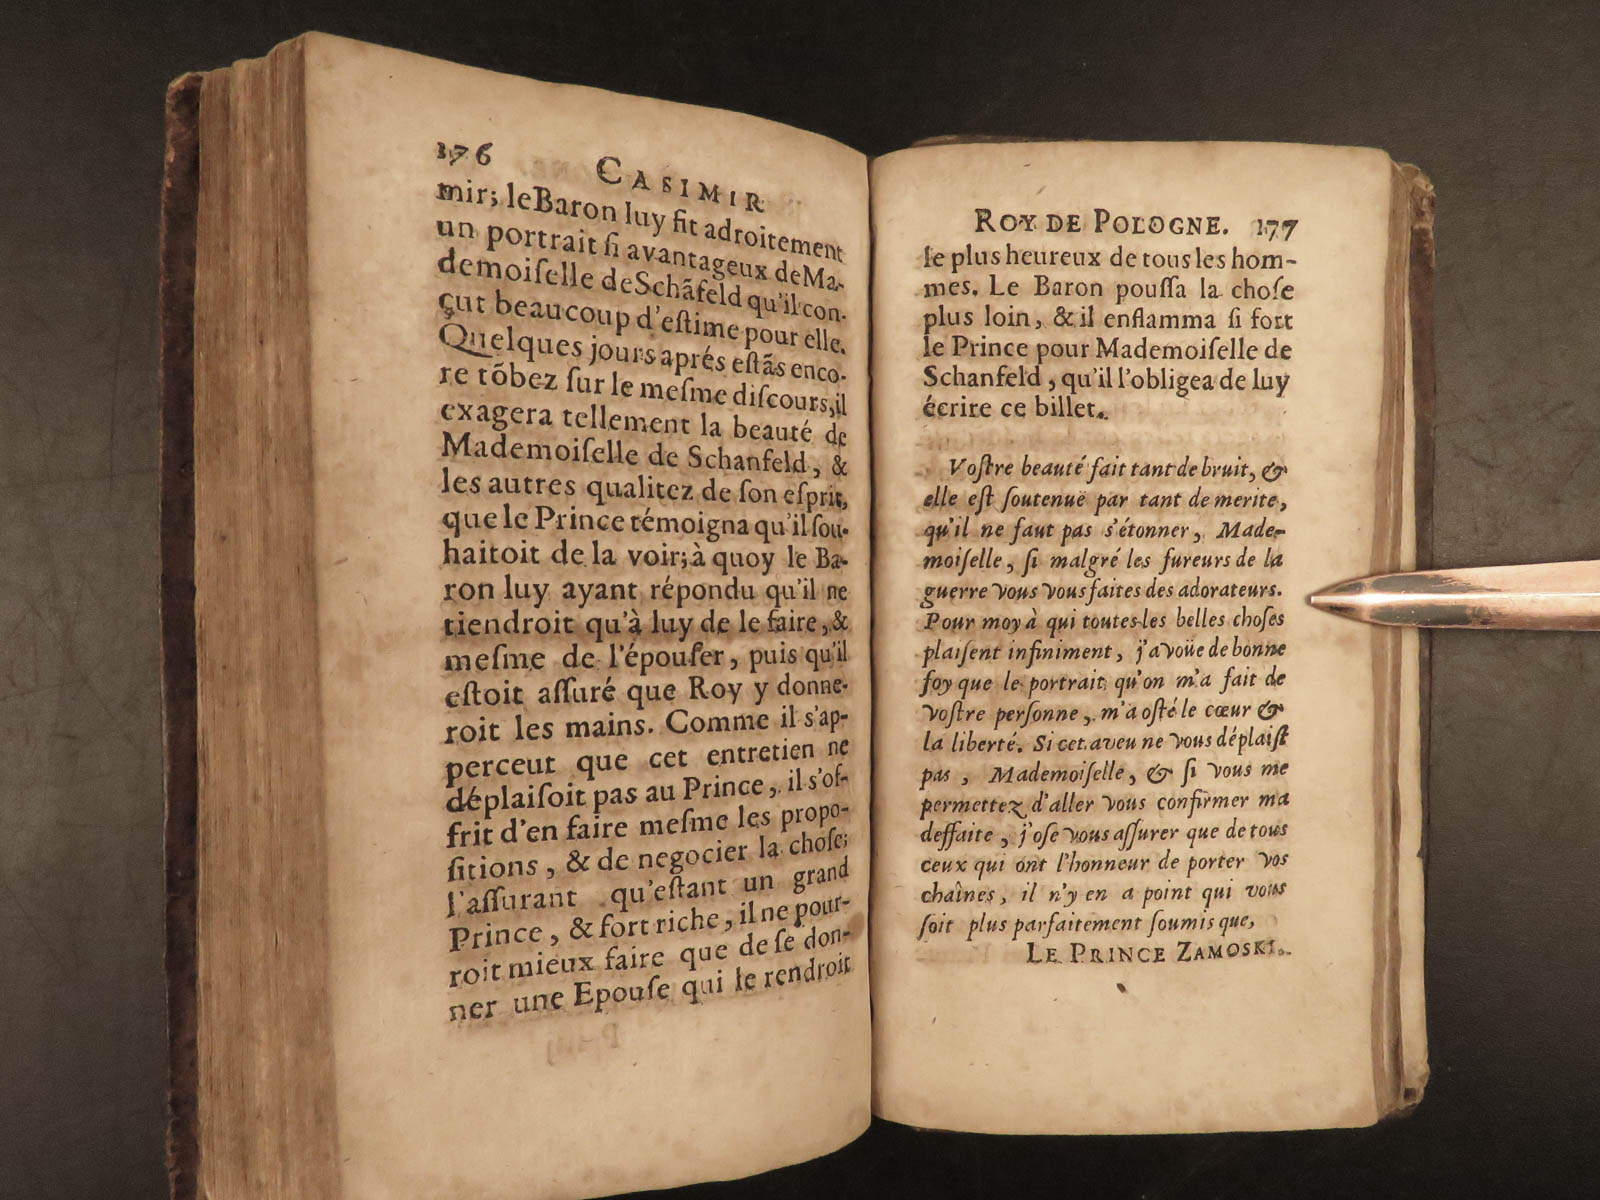 176 CASIMIR
mir; le Baron luy fit adroitement
un portrait ſi avantageux de Ma-
demoiſelle de Schãfeld qu'il con-
çut beaucoup d'eſtime pour elle.
Quelques jours aprés eſtãs enco-
re tõbez ſur le meſme diſcours, il
exagera tellement la beauté de
Mademoiſelle de Schanfeld, &
les autres qualitez de ſon eſprit,
que le Prince témoigna qu'il ſou-
haitoit de la voir; à quoy le Ba-
ron luy ayant répondu qu'il ne
tiendroit qu'à luy de le faire, &
meſme de l'épouſer, puis qu'il
eſtoit aſſuré que Roy y donne-
roit les mains. Comme il s'ap-
perceut que cet entretien ne
déplaiſoit pas au Prince, il s'of-
frit d'en faire meſme les propo-
ſitions, & de negocier la choſe;
l'aſſurant qu'eſtant un grand
Prince, & fort riche, il ne pour-
roit mieux faire que de ſe don-
ner une Epouſe qui le rendroit
ROY DE POLOGNE. 177
le plus heureux de tous les hom-
mes. Le Baron pouſſa la choſe
plus loin, & il enflamma ſi fort
le Prince pour Mademoiſelle de
Schanfeld, qu'il l'obligea de luy
écrire ce billet.
Voſtre beauté fait tant de bruit, &
elle eſt ſoutenuë par tant de merite,
qu'il ne faut pas s'étonner, Made-
moiſelle, ſi malgré les fureurs de la
guerre vous vous faites des adorateurs.
Pour moy à qui toutes les belles choſes
plaiſent infiniment, j'avoüe de bonne
foy que le portrait qu'on m'a fait de
voſtre perſonne, m'a oſté le cœur &
la liberté. Si cet aveu ne vous déplaiſt
pas, Mademoiſelle, & ſi vous me
permettez d'aller vous confirmer ma
deffaite, j'oſe vous aſſurer que de tous
ceux qui ont l'honneur de porter vos
chaînes, il n'y en a point qui vous
ſoit plus parfaitement ſoumis que,
LE PRINCE ZAMOSKI.